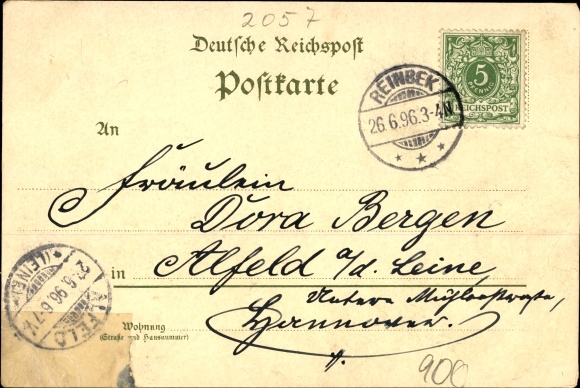 2057
Deutsche Reichspost
Postkarte
5
PFENNIG
REICHSPOST
REINBEK
26.6.96.3-4N
An
Fräulein
Dora Bergen
in Alfeld a/d. Leine,
Untere Mühlenstraße,
Hannover.
Wohnung
(Straße und Hausnummer)
ALFELD
(LEINE)
96.6-7V
900